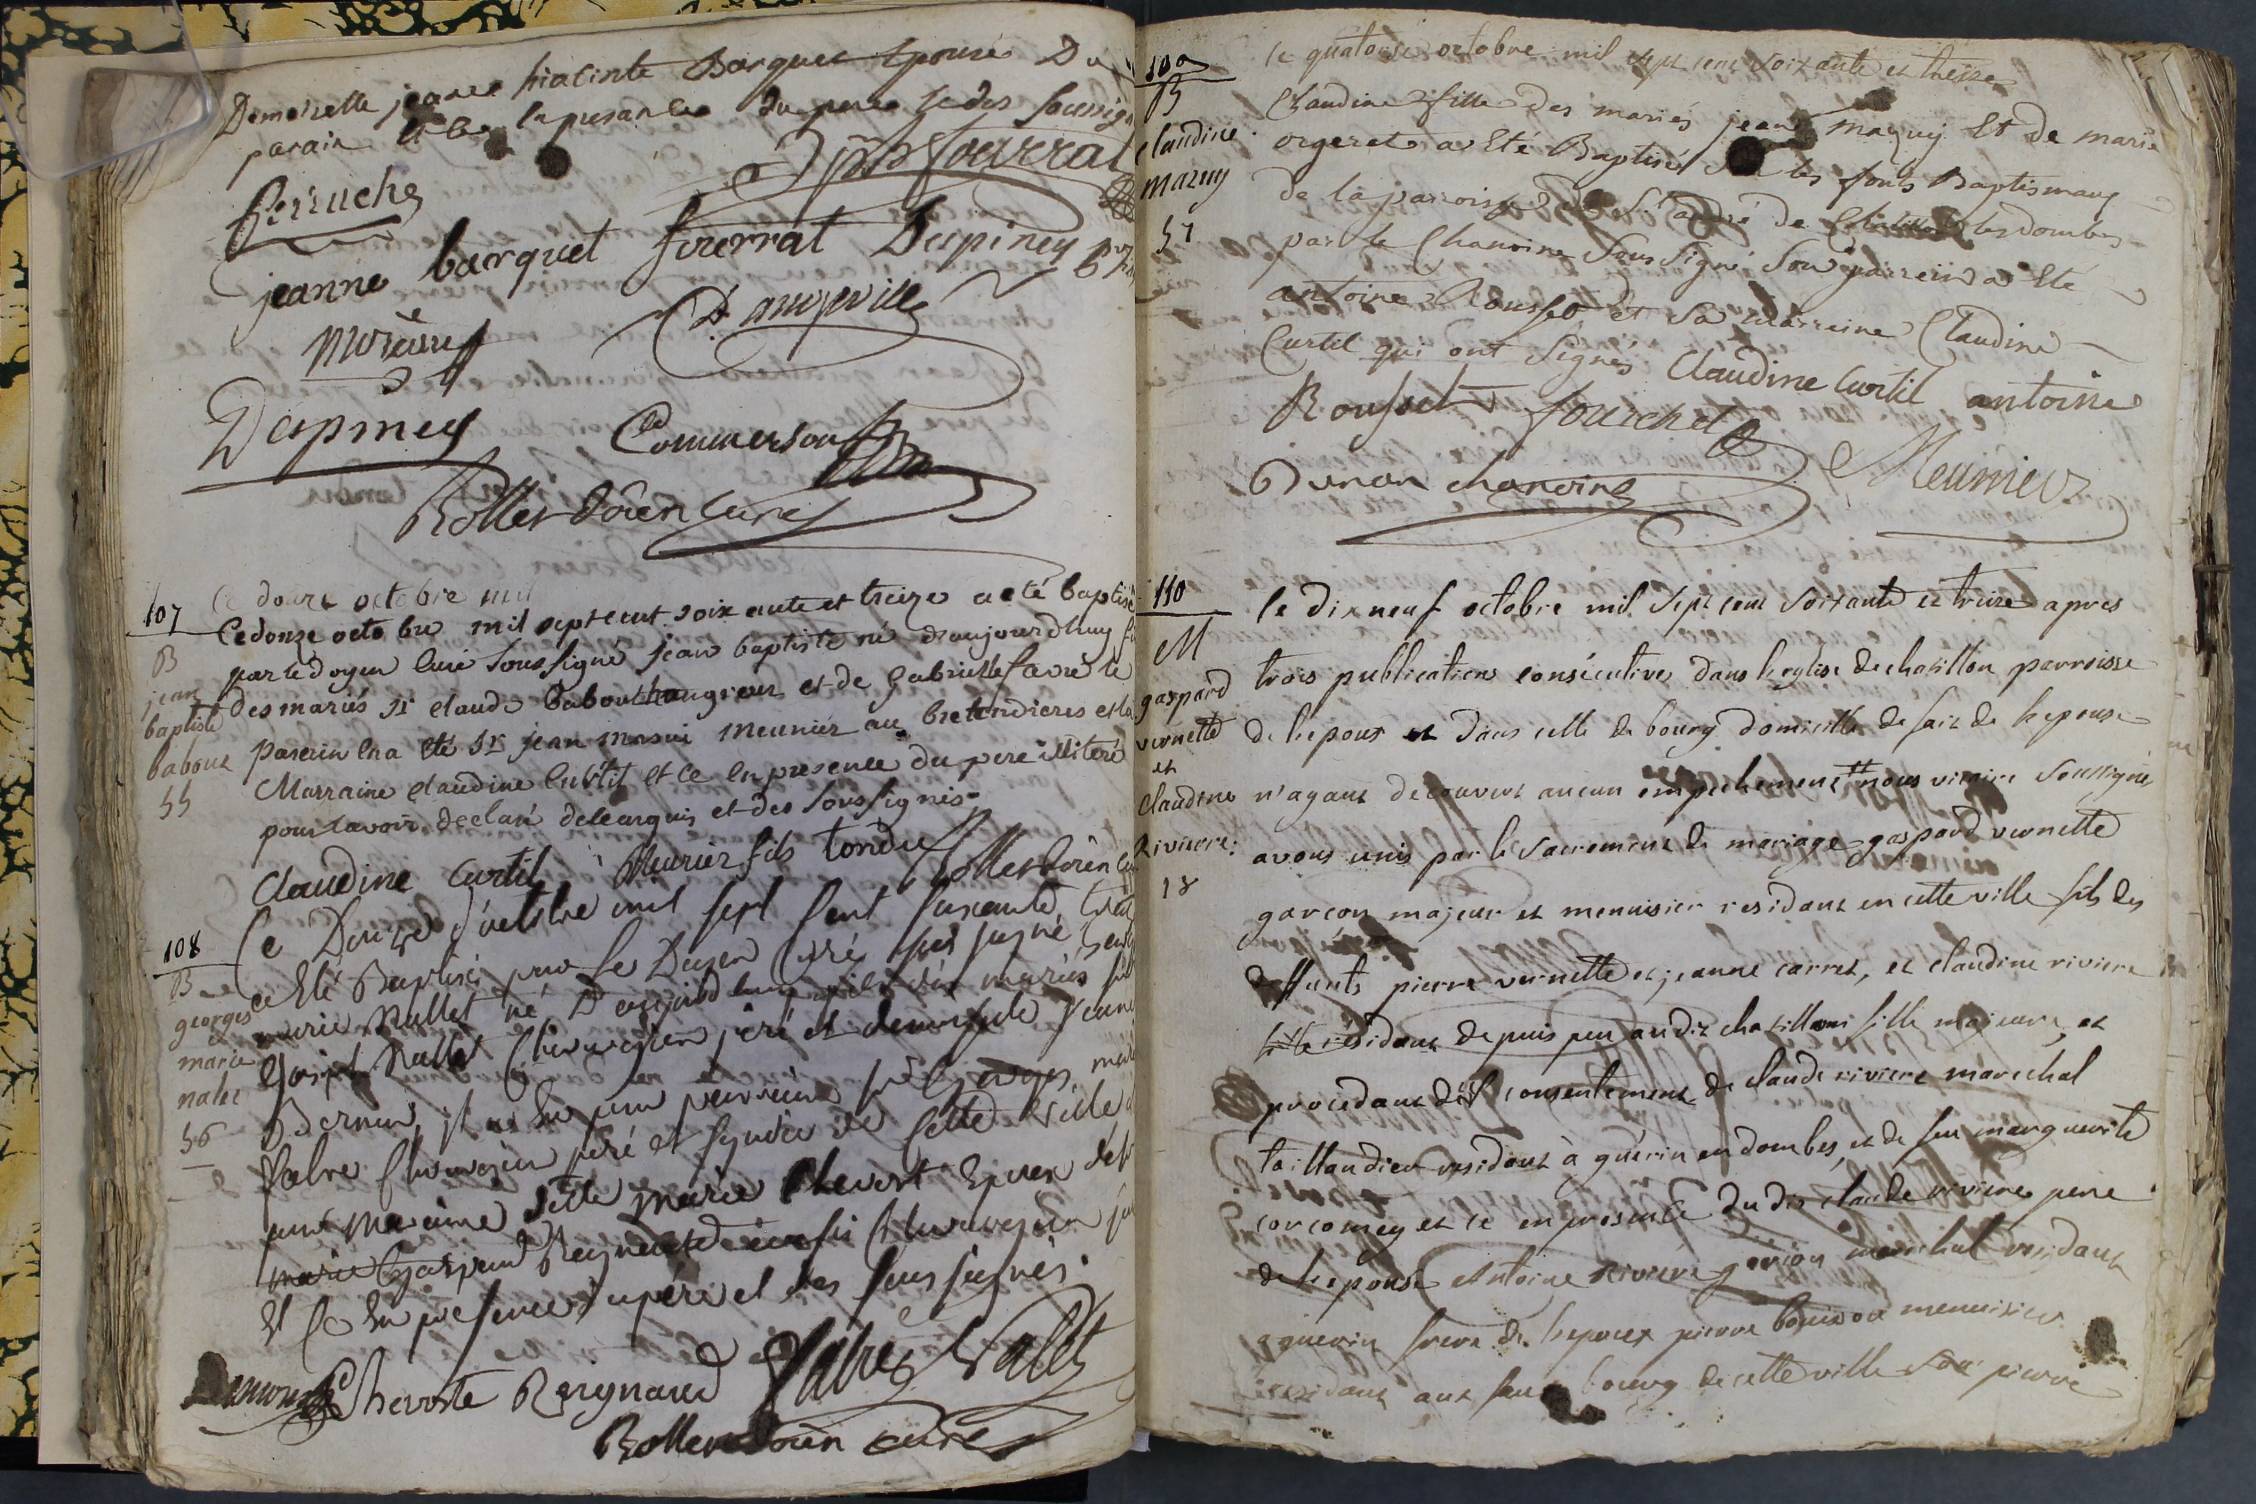 Demoiselle jeanne hiacinte Barquet Epouse Du
parain le la presance du pere & des soussign
Jph fourrat
Perruche
jeanne barquet fourrat Dupiney
morieres Dangeville
Dupiney Commerson
Rollet doien Curé
107
B
jean
baptiste
baboux
55
Ce douze octobre mil
Ce donze octobre mil sept cent soix ante et treize a eté baptisé
par le doyen curé soussigné jean baptiste né d'aujourdhuy fi
des mariés sr claude baboux et de gabrielle favre le
parein en a eté sr jean masui meunier au bretondieres et la
Marraine claudine Curtil et ce en presence du pere illiteré
pour lavoir declaré de ce enquis et des soussignés
Claudine Curtil Meurier fils tondu Rollet doien cu
108
B
georges
marie
nalet
56
Ce Douze d'octobre mil sept sent soixante trei
a Eté Baptisé par le Doyen Curé sous signé Georg
marie Nallet né D'aujourdhuy fils des mariés sr
Joseph Nallet Chirurgien juré et demoiselle jeanne
Bernard, il a Eu pour parrain sr Georges, marie
fabre Chirurgien juré et syndic de cette ville
pour Maraine delle marie Chevert Epouse de sr
marie Gaspard Reignard aussi Chirurgien ju
Et ce En presence du pére et des sous signés
Chevoste Reignard fabre Nallet
Rollet doien curé
109
B
claudine
mazuy
57
le quatorse octobre mil sept cent soixante et treize
Claudine fille des mariés jean mazuy Et de marie
orgeret a Eté Baptisée sur les fonts Baptismaux
de la paroisse de st andré de Chatillon les dombes
par le Chanoine sous signé son parrein a Eté
antoine Rousset et sa marreine Claudine
Curtil qui ont signés Claudine Curtil antoine
Rousset fourchet
Dunan chanoine Meunier
110
M
gaspard
vernette
et
claudine
Riviere
18
le dix neuf octobre mil sept cent soixante et treize apres
trois publications consécutives dans l'eglise de chatillon parroisse
de l'epoux et dans celle de bourg domicille de fait de l'epouse
n'ayant découvert aucun empechement nous vicaire soussigné
avons unis par le sacrement de mariage gaspard vernette
garçon majeur et menuisier residant en cette ville fils des
deffunts pierre vernette et jeanne carret, et claudine riviere
residant depuis peu audit chatillon fille majeure, et
procedant de consentement de claude riviere marechal
taillandier residant à guérin en dombes, et de feu marguerite
corcomey et ce en presence dudit claude riviere pere
de l'epouse Antoine Riviere garçon marechal residant
a guerin frere de l'epouse pierre bouisou menuisier
residant aux faux bourg de cette ville pierre